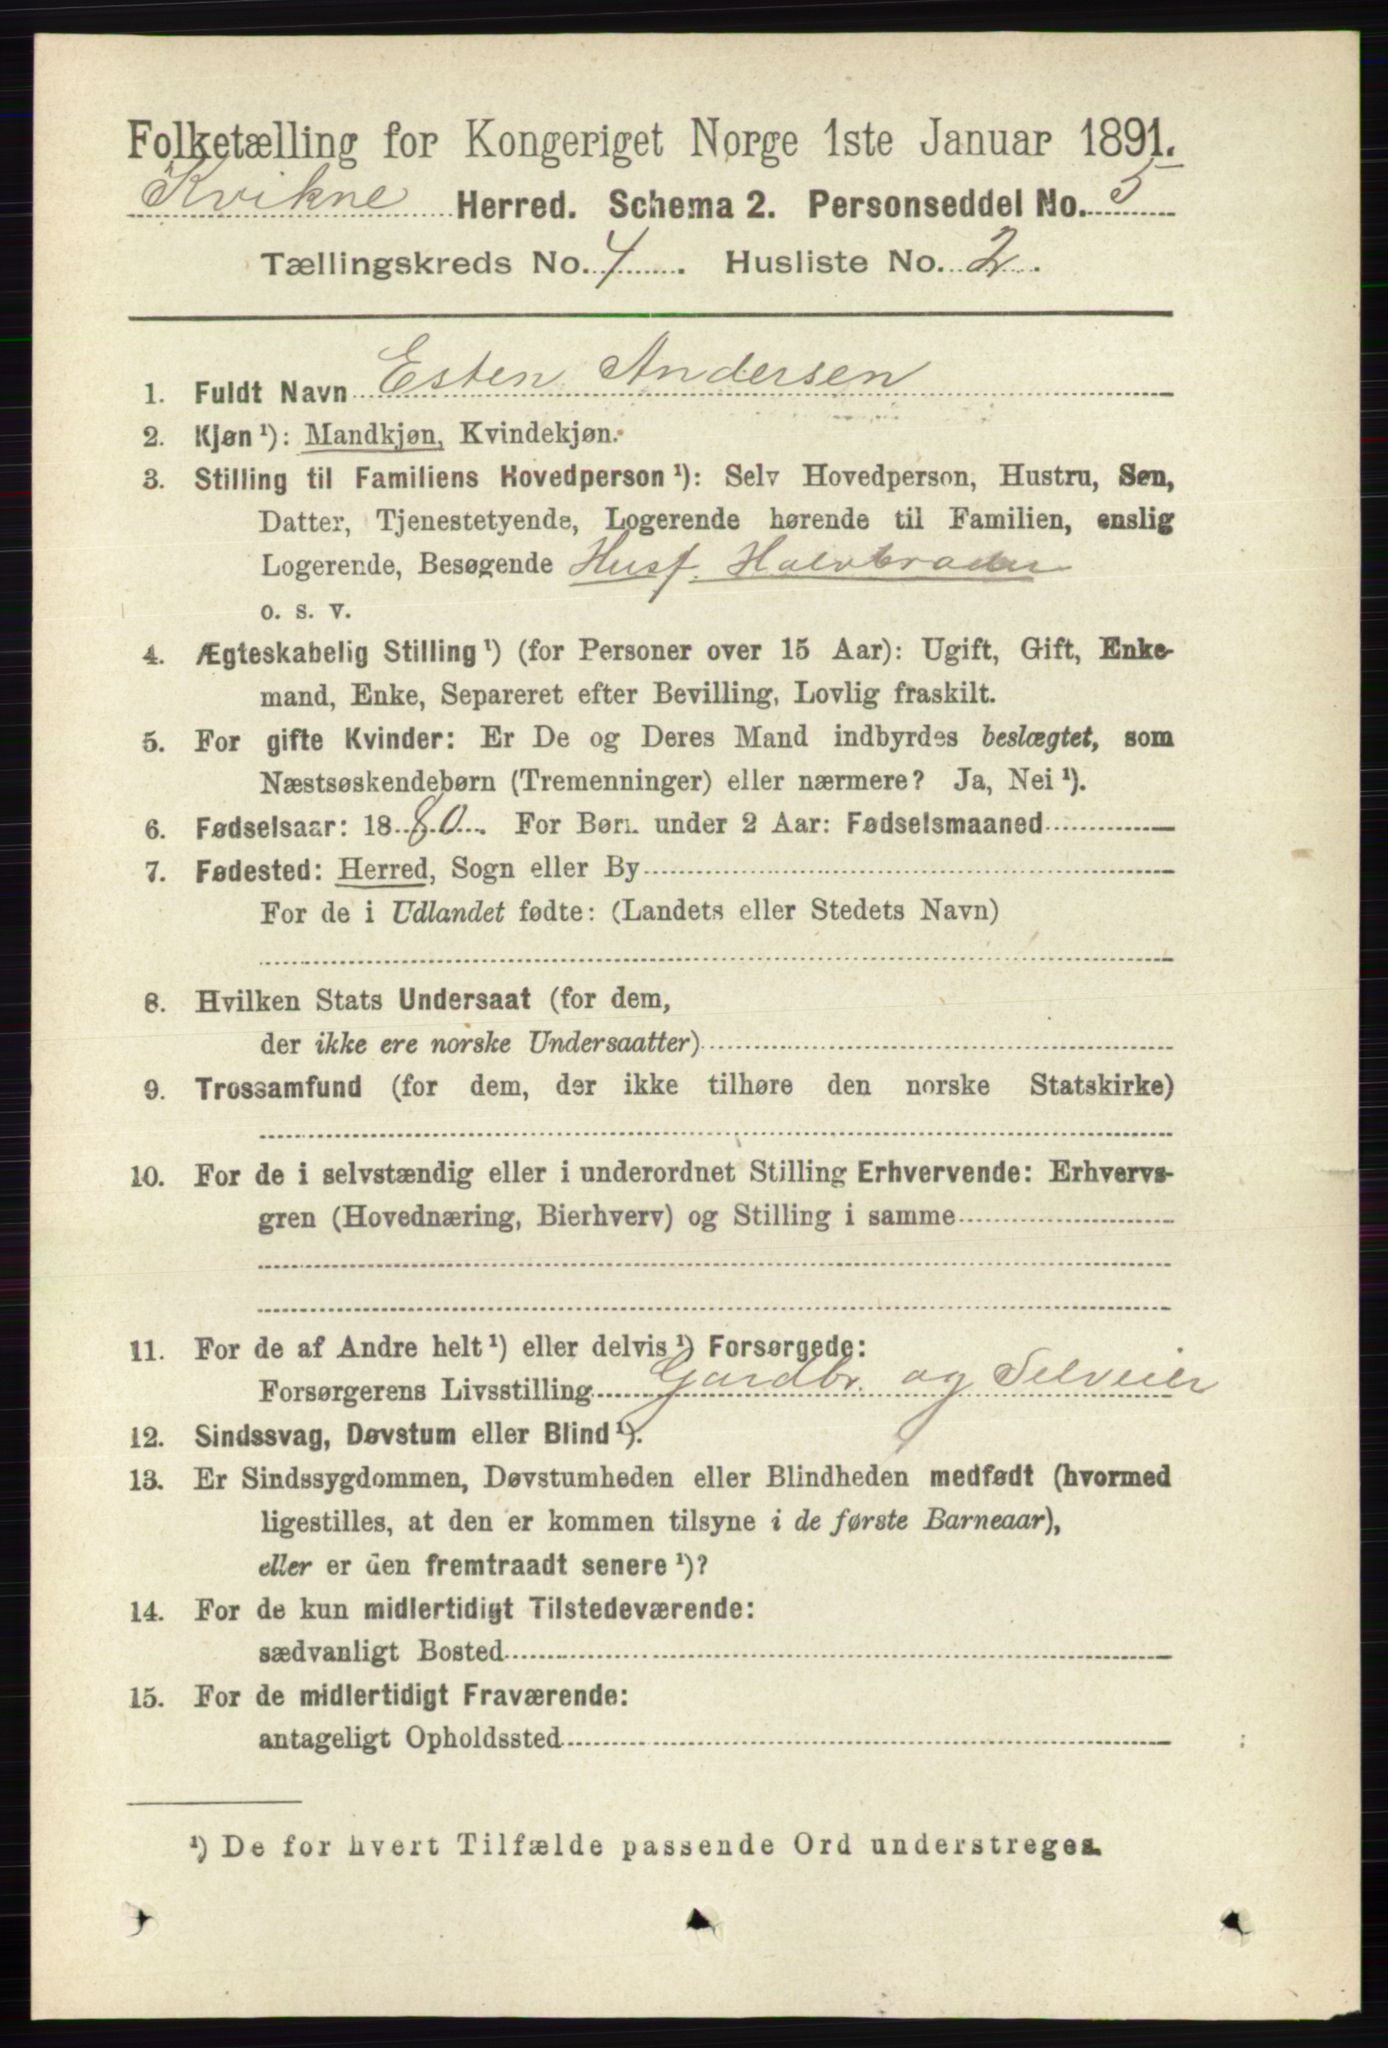 Folketælling for Kongeriget Norge 1ste Januar 1891.
Kvikne Herred. Schema 2. Personseddel No. 5
Tællingskreds No. 4. Husliste No. 2.
1. Fuldt Navn Esten Andersen
2. Kjøn¹): Mandkjøn, Kvindekjøn.
3. Stilling til Familiens Hovedperson¹): Selv Hovedperson, Hustru, Søn,
Datter, Tjenestetyende, Logerende hørende til Familien, enslig
Logerende, Besøgende Husf. Halvbroder
o. s. v.
4. Ægteskabelig Stilling¹) (for Personer over 15 Aar): Ugift, Gift, Enke-
mand, Enke, Separeret efter Bevilling, Lovlig fraskilt.
5. For gifte Kvinder: Er De og Deres Mand indbyrdes beslægtet, som
Næstsøskendebørn (Tremenninger) eller nærmere? Ja, Nei¹).
6. Fødselsaar: 1880. For Børn under 2 Aar: Fødselsmaaned
7. Fødested: Herred, Sogn eller By
For de i Udlandet fødte: (Landets eller Stedets Navn)
8. Hvilken Stats Undersaat (for dem,
der ikke ere norske Undersaatter)
9. Trossamfund (for dem, der ikke tilhøre den norske Statskirke)
10. For de i selvstændig eller i underordnet Stilling Erhvervende: Erhvervs-
gren (Hovednæring, Bierhverv) og Stilling i samme
11. For de af Andre helt¹) eller delvis¹) Forsørgede:
Forsørgerens Livsstilling Gardbr. og Selveier
12. Sindssvag, Døvstum eller Blind¹).
13. Er Sindssygdommen, Døvstumheden eller Blindheden medfødt (hvormed
ligestilles, at den er kommen tilsyne i de første Barneaar),
eller er den fremtraadt senere¹)?
14. For de kun midlertidigt Tilstedeværende:
sædvanligt Bosted
15. For de midlertidigt Fraværende:
antageligt Opholdssted
¹) De for hvert Tilfælde passende Ord understreges.